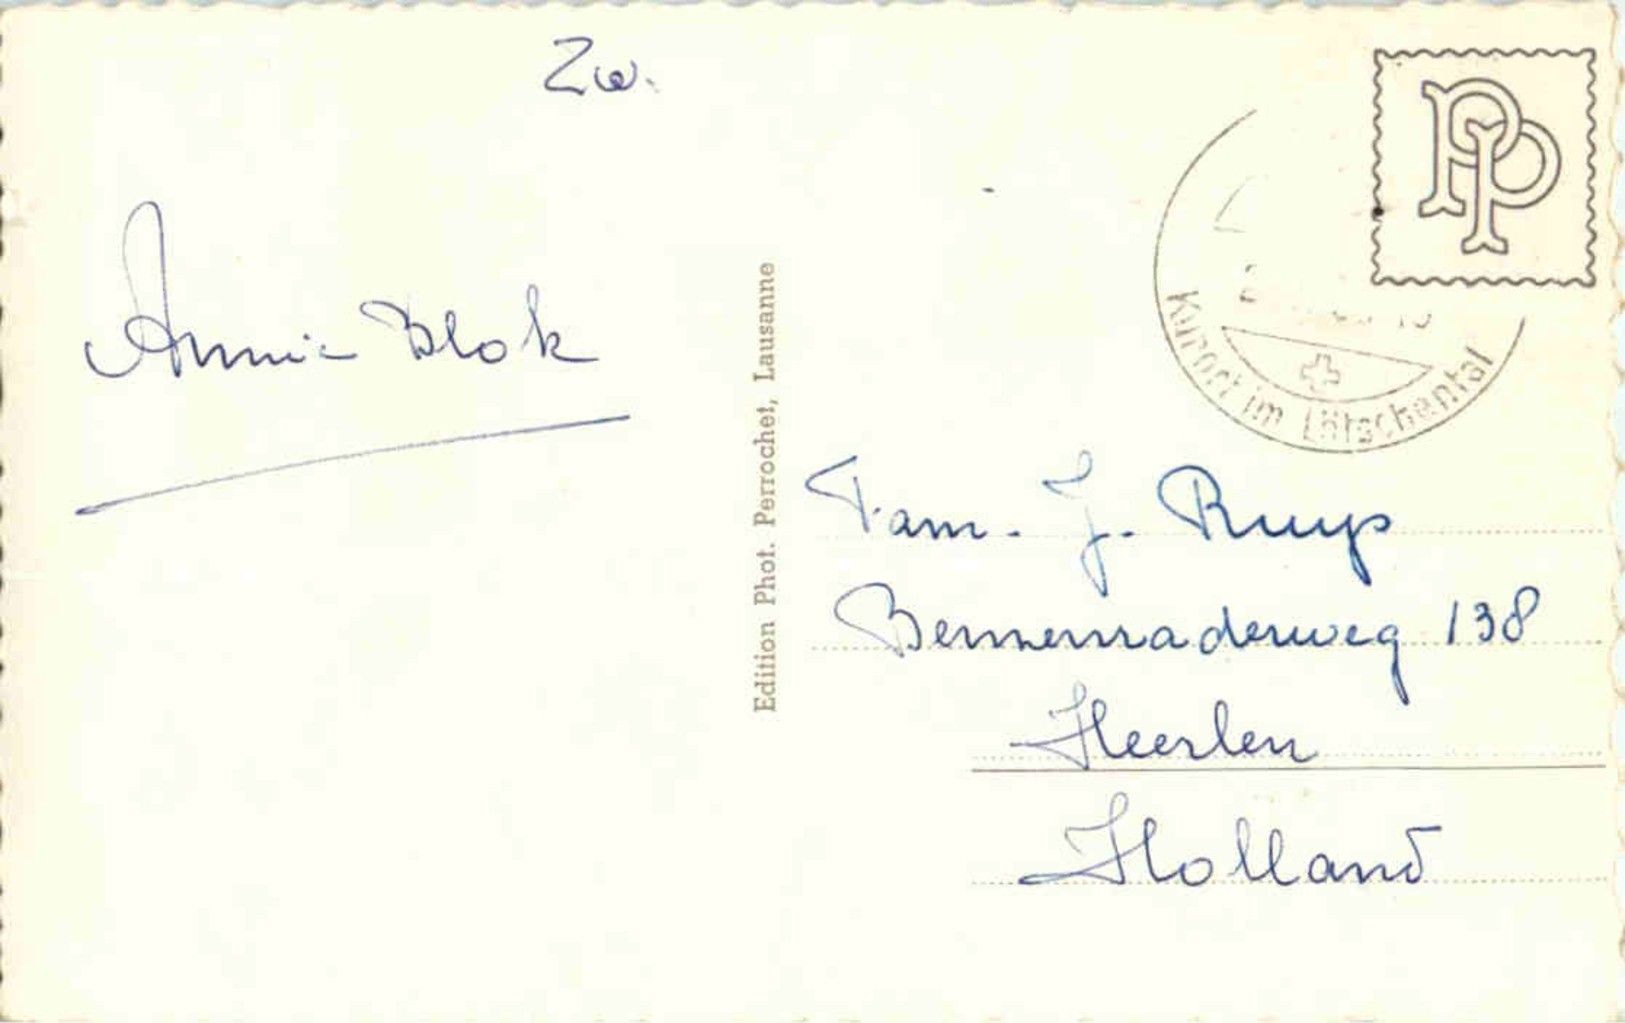 Zw.
Annie Blok
Edition Phot. Perrochet, Lausanne
PP
Kurort im Lötschental
Fam. J. Ruyp
Benzenraderweg 138
Heerlen
Holland